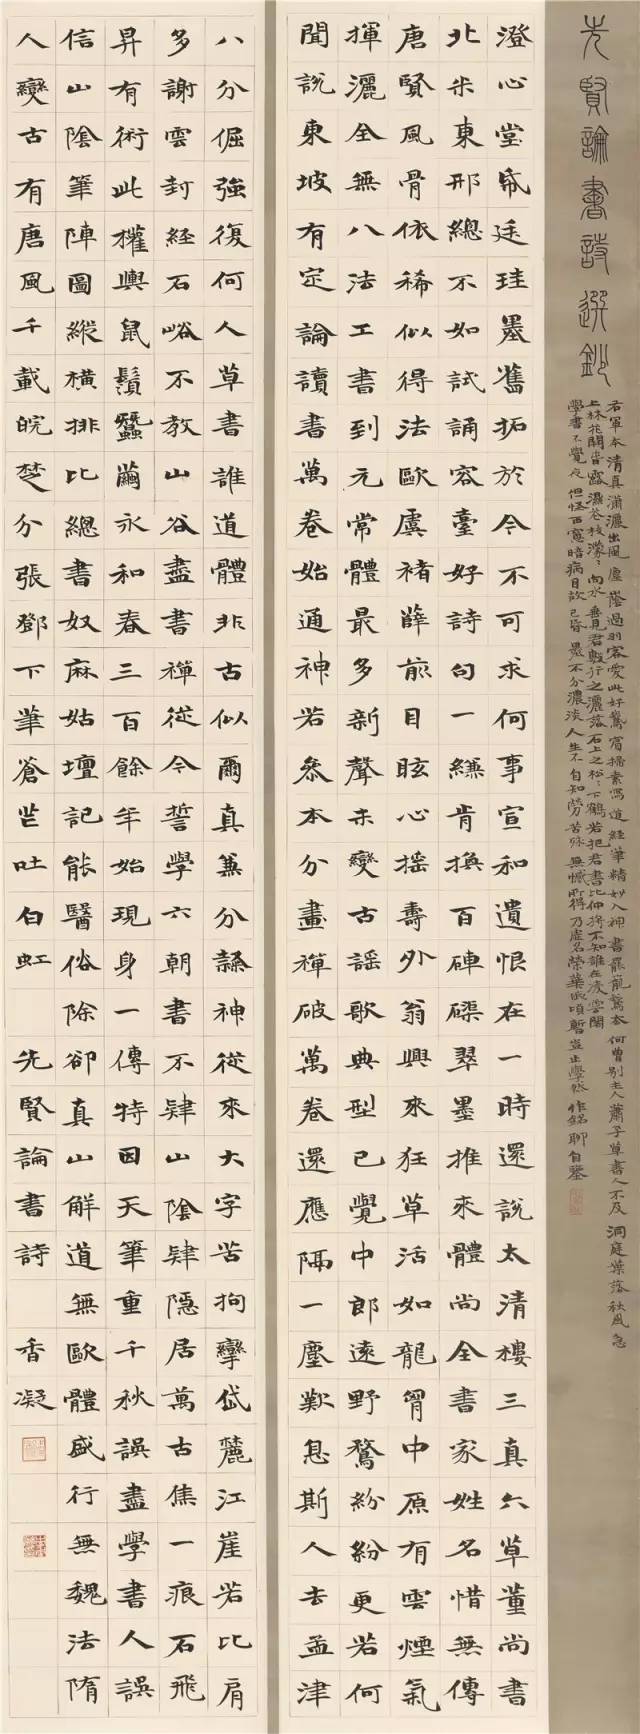 先賢論書詩選鈔
右軍本清真瀟灑出風塵陰過羽客愛此好鵞賓掃素寫道經筆精妙入神書罷籠鵞去何曾別主人蕭子草書人不及洞庭葉落秋風急
上林花開皆露濕花枝濛〻向水垂見君數行之灑落石上之松〻下鶴若把君書比仲將不知誰在凌雲閣
學書不覺夜但怪西窻暗病目故已昏墨不分濃淡人生不自知勞苦殊無憾所得乃虛名榮華俄頃暫豈止學然作銘聊自鑒
澄心堂帋廷珪墨舊拓於今不可求何事宣和遺恨在一時還說太清樓三真六草董尚書
北米東邢總不如試誦容臺好詩句一縑肯換百硨磲翠墨推來體尚全書家姓名惜無傳
唐賢風骨依稀似得法歐虞褚薛前目眩心搖壽外翁興來狂草活如龍胷中原有雲煙氣
揮灑全無八法工書到元常體最多新聲未變古謡歌典型已覺中郎遠野鶩紛紛更若何
聞說東坡有定論讀書萬卷始通神若參本分畫禪破萬卷還應隔一塵歎息斯人去孟津
八分倔強復何人草書誰道體非古似爾真兼分隸神從來大字苦拘攣岱麓江崖若比肩
多謝雲封經石峪不教山谷盡書禪從今誓學六朝書不肄山陰肄隱居萬古焦一痕石飛
昇有術此權輿鼠鬚蠶繭永和春三百餘年始現身一傳特因天筆重千秋誤盡學書人誤
信山陰筆陣圖縱橫排比總書奴麻姑壇記能醫俗除卻真山解道無歐體盛行無魏法隋
人變古有唐風千載皖楚分張鄧下筆蒼芒吐白虹 先賢論書詩 香凝